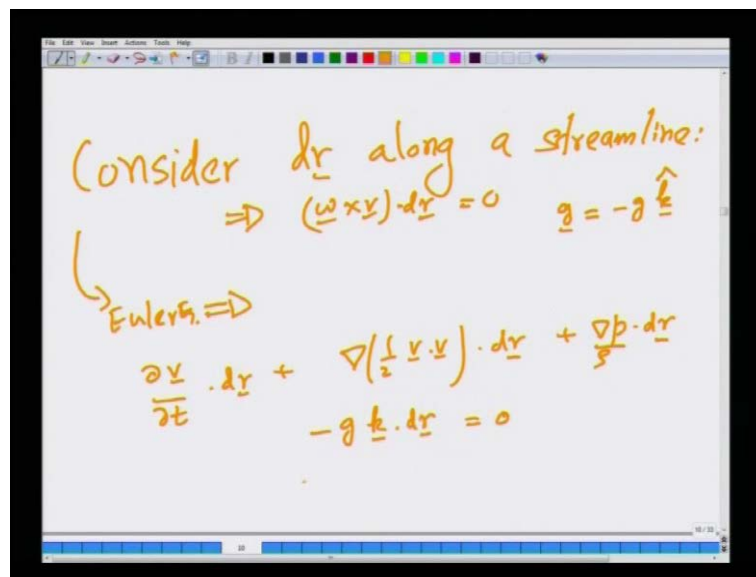 File Edit View Insert Actions Tools Help
Consider dr along a streamline:
⇒ (ω × v)·dr = 0 g = -g k̂
Euler Eq. ⇒
∂v/∂t · dr + ∇(1/2 v·v)·dr + ∇p/ρ · dr
- g k · dr = 0
10